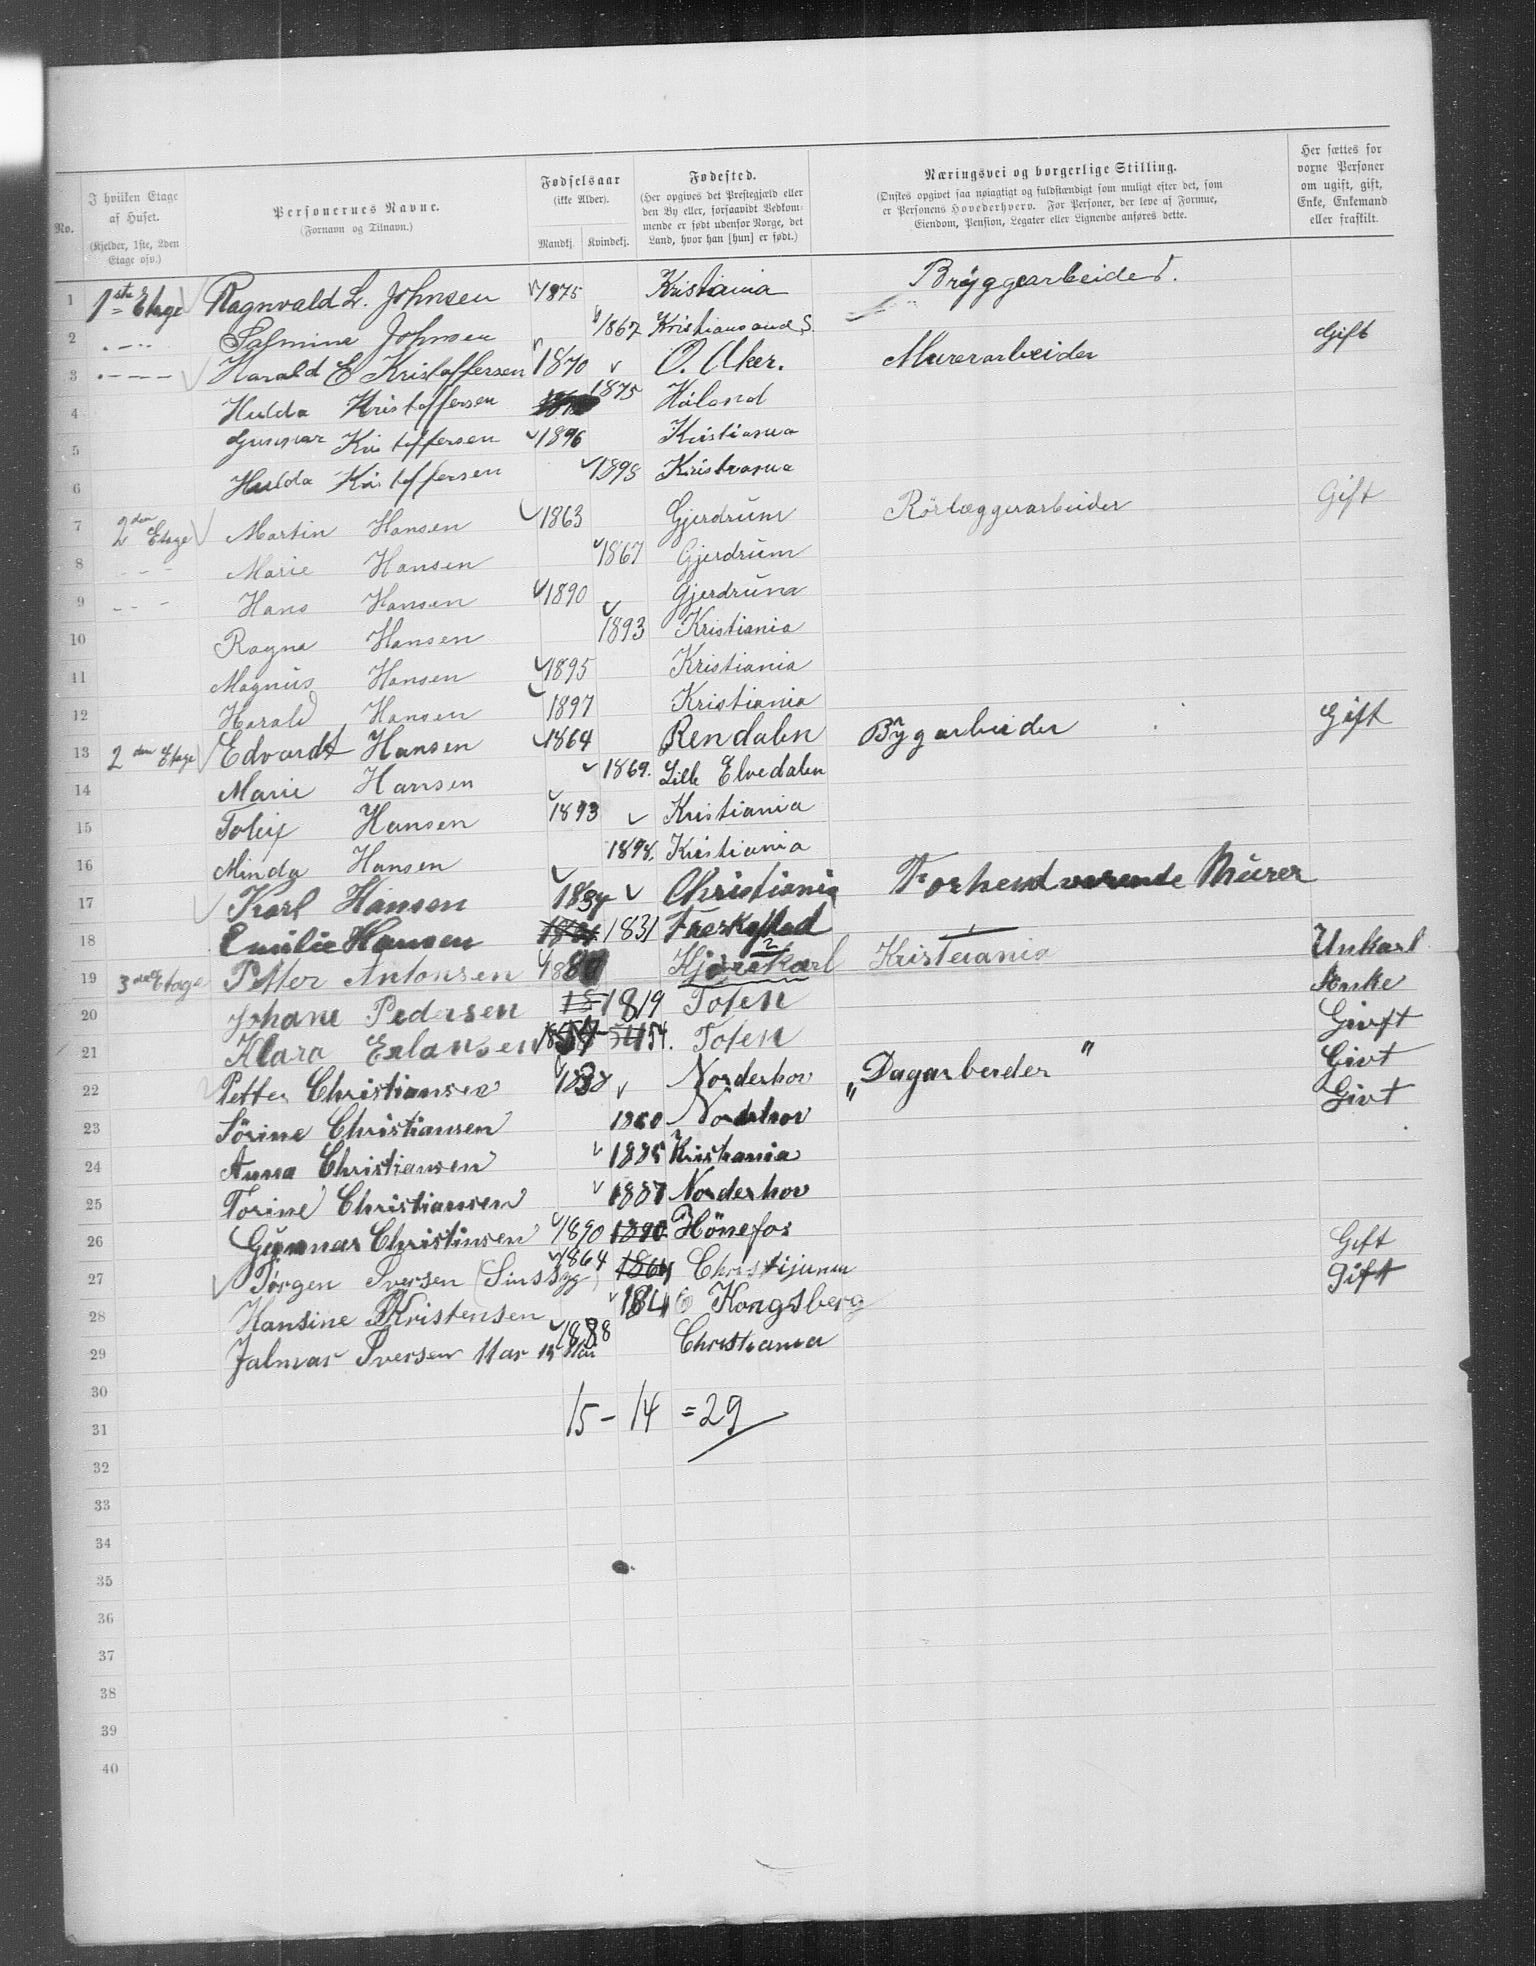 No.
I hvilken Etage af Huset. (Kjelder, 1ste, 2den Etage osv.)
Personernes Navne. (Fornavn og Tilnavn.)
Fødselsaar (ikke Alder). Mandkj. Kvindekj.
Fødested. (Her opgives det Prestegjæld eller den By eller, forsaavidt Vedkommende er født udenfor Norge, det Land, hvor han [hun] er født.)
Næringsvei og borgerlige Stilling. (Ønskes opgivet saa nøiagtigt og fuldstændigt som muligt efter det, som er Personens Hovederhverv. For Personer, der leve af Formue, Eiendom, Pension, Legater eller Lignende anføres dette.
Her sættes for voxne Personer om ugift, gift, Enke, Enkemand eller fraskilt.
1 1ste Etage Ragnvald L. Johnsen 1875 Kristiania Bryggearbeider.
2 Salmine Johnsen 1867 Kristiansand S. Gift
3 Harald E Kristoffersen 1870 O. Aker. Murerarbeider
4 Hulda Kristoffersen 1875 Høland
5 Gunnar Kristoffersen 1896 Kristiania
6 Hulda Kristoffersen 1898 Kristiania
7 2den Etage Martin Hansen 1863 Gjerdrum Rörlæggerarbeider Gift
8 Marie Hansen 1867 Gjerdrum
9 Hans Hansen 1890 Gjerdrum
10 Ragna Hansen 1893 Kristiania
11 Magnus Hansen 1895 Kristiania
12 Harald Hansen 1897 Kristiania
13 2den Etage Edvardt Hansen 1864 Rendalen Bygarbeider Gift
14 Marie Hansen 1869. Lille Elvedalen
15 Hansen 1893 Kristiania
16 Minda Hansen 1898. Kristiania
17 Karl Hansen 1834 Christiania Forhenværende Mürer
18 Emilie Hansen 1831
19 3die Etage Petter Antonsen 1880 Kjørekarl Kristiania Unkarl
20 Johane Pedersen 1819 Toten Enke
21 Klara Erlansen 54. Toten Givft
22 Petter Christiansen 1838 Norderhov „ Dagarbeider " Givt
23 Sörine Christiansen 1860 Norderhov Givt
24 Anna Christiansen 1885 Kristiania
25 Torine Christiansen 1887 Norderhov
26 Gunnar Christinsen 1890 1890 Hönefos
27 Jørgen Iversen (Sinssyg) 1864 1864 Gift
28 Hansine Kristensen 184 Kongsberg Gift
29 Jalmar Iversen 1888 Christiania
30
31 15 - 14 = 29
32
33
34
35
36
37
38
39
40